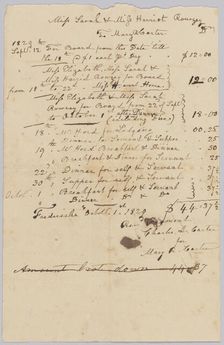 Miss Sarah & Miss Harriet Rouzee
To Mary Carter Dr
1820
Sept. 12 For Board from the Date till
the 18 @ $1 each pr Day $12.00
Miss Elizabeth, Miss Sarah &
Miss Harriet Rouzee for Board
from 18th to 22d Miss Harriet Home 12.00
Miss Elizabeth & Miss Sarah
Rouzee for Board from 22 of Sept
to October 1 18.00
18 Mr Hord for Lodging 00.25
" Dinner to Servant & Supper .25
19 Mr Hord Breakfast & Dinner 50
" Breakfast & Dinner for Servant 25
22 Dinner for self & Servant
30 Supper for self & Servant
Octob. 1 Breakfast for self & Servant
" Dinner
$44.37½
Fredericksbg Octob. 1. 1820
Charles L. Carter
for
Mary Carter
Amount Brot down 44.37